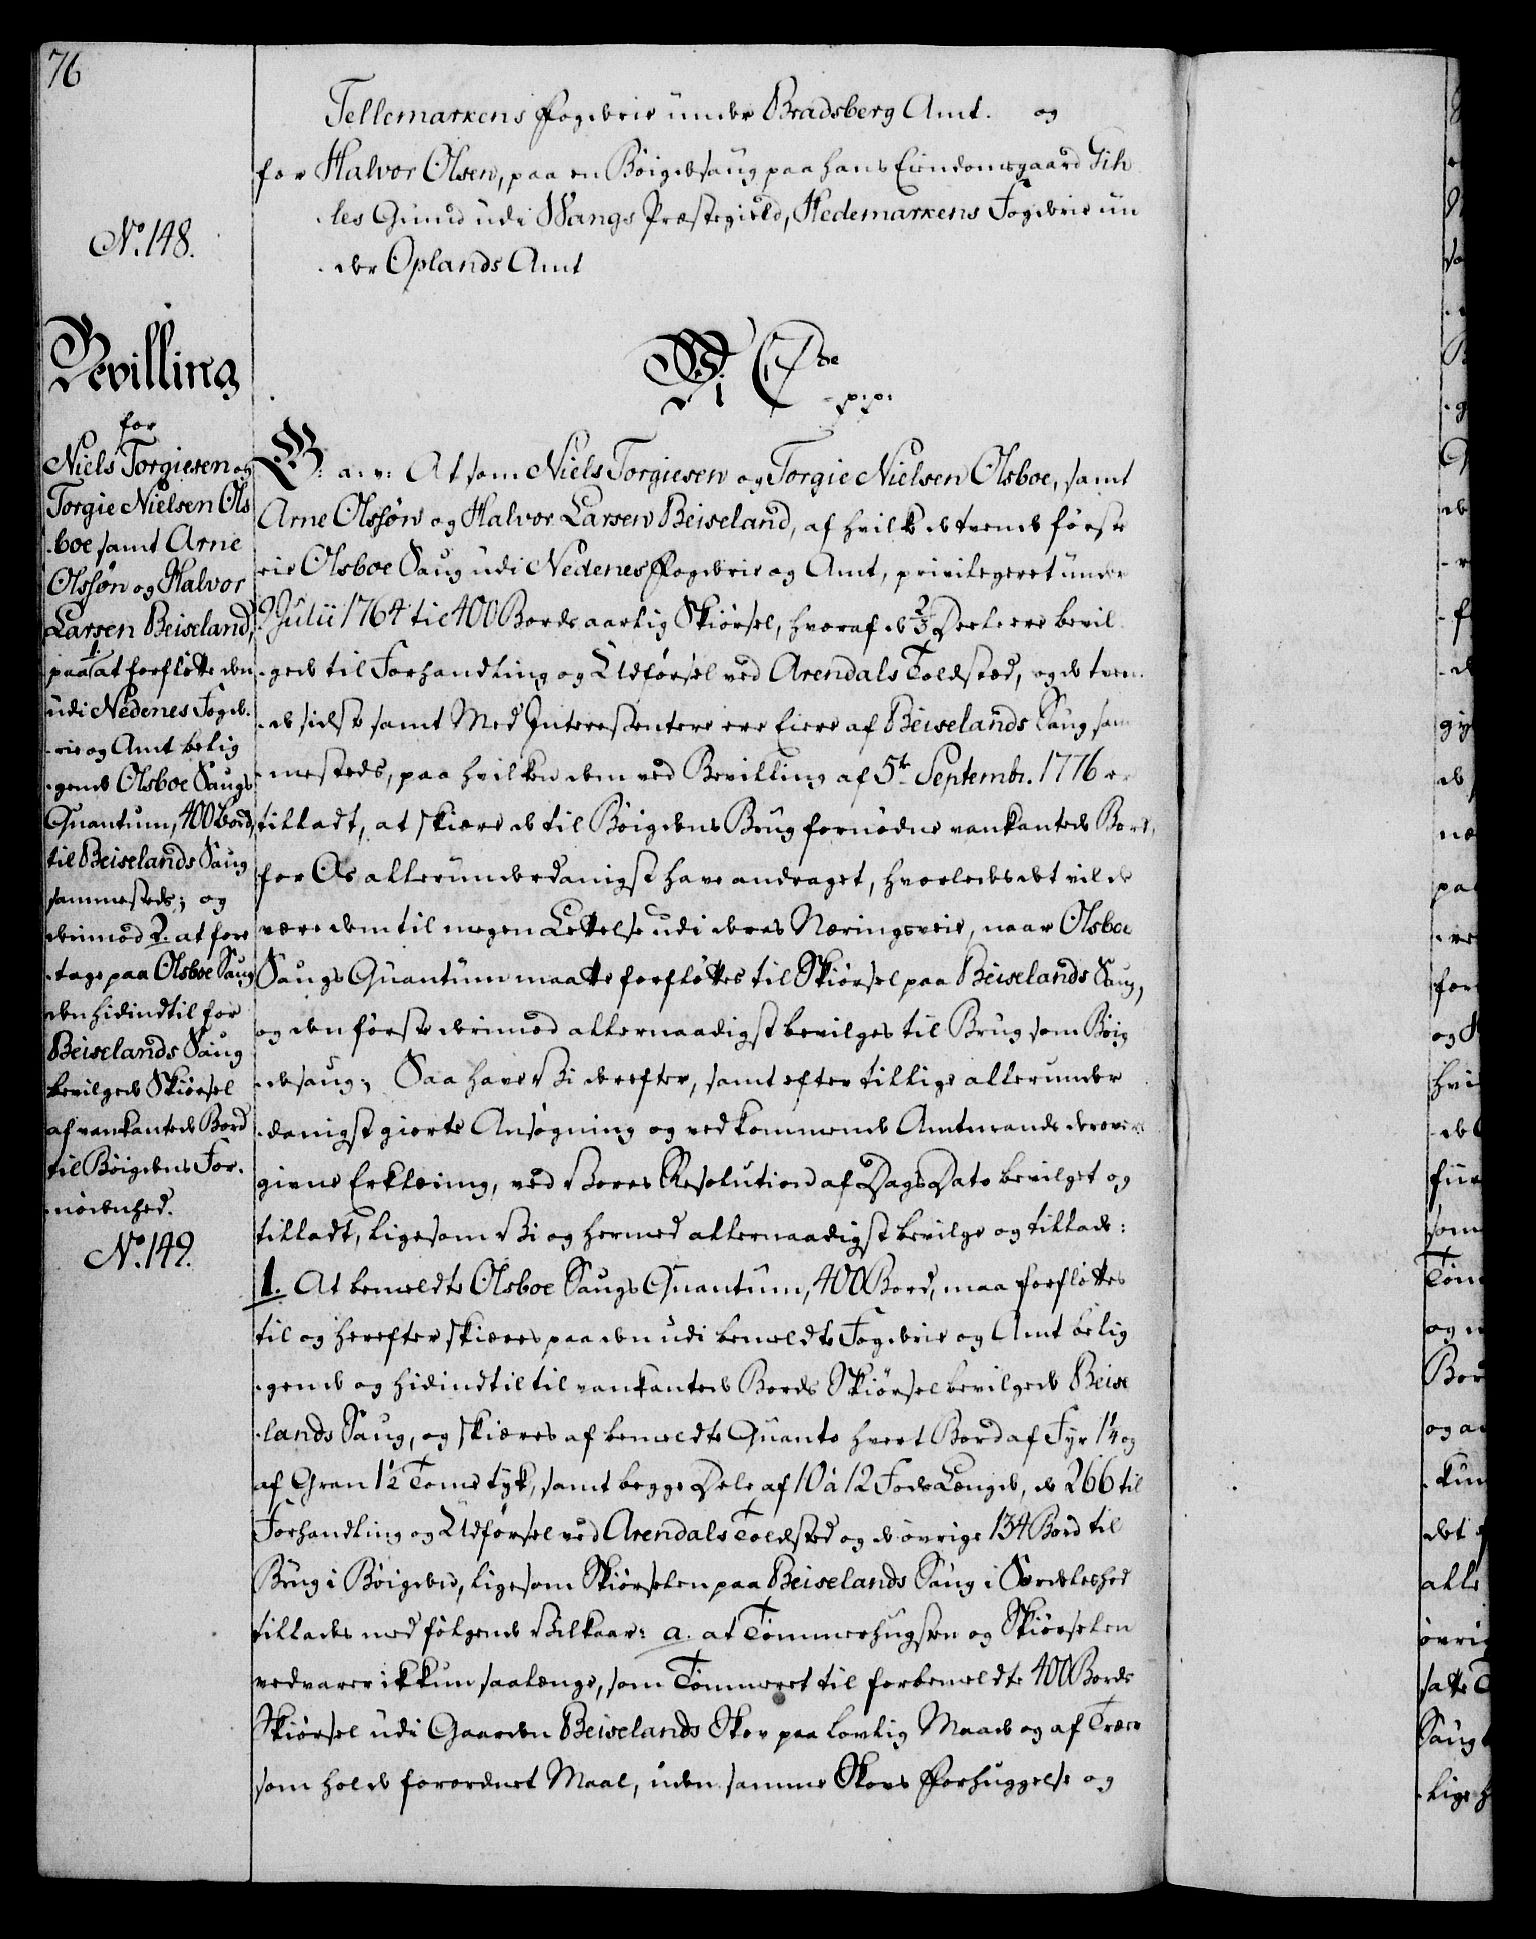 76
Tellemarkens Fogderie under Bradsberg Amt. og
for Halvor Olsen, paa en Böigdesaug paa hans Eiendomsgaard Tih
les Grund udi Wangs Præstegield, Hedemarkens Fogderie un
der Oplands Amt
No. 148.
Bevilling
for
Niels Torgiesen og
Torgie Nielsen Ols
boe samt Arne
Olssøn og Halvor
Larsen Beiseland,
paa 1 at forflötte den
udi Nedenes Fogd.
rie og Amt belig
gende Olsboe Saugs
Quantum, 400 Bord,
til Beiselands Saug
sammesteds; og
derimod 2. at fore
tage paa Olsboe Saug
den hidindtil for
Beiselands Saug
bevilgede Skiörsel
af vankantede Bord
til Böigdens For.
nödenhed.
No. 149.
Wi C 7de
p: p:
G: a: v: At som Niels Torgiesen og Torgie Nielsen Olsboe, samt
Arne Olssøn og Halvor Larsen Beiseland, af hvilke de tvende förste
eie Olsboe Saug udi Nedenes Fogderie og Amt, privilegeret under
Julii 1764 til 400 Bords aarlig Skiörsel, hvoraf de 2/3 Deele ere bevil
gede til Forhandling og Udförsel ved Arendals Toldsted, og de tven
de sidste samt Med Interessentere ere Eiere af Beiselands Saug sam
mesteds, paa hvilken dem ved Bevilling af 5te Septembr. 1776 er
tilladt, at skiære de til Böigdens Brug fornödne vankantede Bord,
for Os allerunderdanigst have andraget, hvorledes det vilde
være dem til megen Lettelse udi deres Næringsveie, naar Olsboe
Saugs Quantum maatte forflöttes til Skiörsel paa Beiselands Saug,
og den förste derimod allernaadigst bevilges til Brug som Böig
desaug; Saa have Vi derefter, samt efter tillige allerunder
danigst giorte Ansögning og vedkommende Amtmands derover
givne Erklæring, ved Vores Resolution af Dags Dato bevilget og
tilladt, ligesom Vi og hermed allernaadigst bevilge og tillade:
1. At bemeldte Olsboe Saugs Quantum, 400 Bord, maa forflöttes
til og herefter skiæres paa den udi bemeldte Fogderie og Amt belig
gende og hidindtil til vankantede Bords Skiörsel bevilgede Beise
lands Saug, og skiæres af bemeldte Quanto hvert Bord af Fyr 1¼ og
af Gran 1½ Tomme tyk, samt begge Dele af 10 à 12 Fods Længde, de 266 til
Forhandling og Udförsel ved Arendals Toldsted og de övrige 134 Bord til
Brug i Böigden, ligesom Skiörselen paa Beiselands Saug i Særdeleshed
tillades med fölgende Vilkaar: a. at Tömmerhugsten og Skiörselen
vedvarer ikkun saalænge, som Tömmeret til forbemeldte 400 Bords
Skiörsel udi Gaarden Beiselands Skov paa lovlig Maade og af Træer
som holde forordnet Maal, uden samme Skovs Forhuggelse og